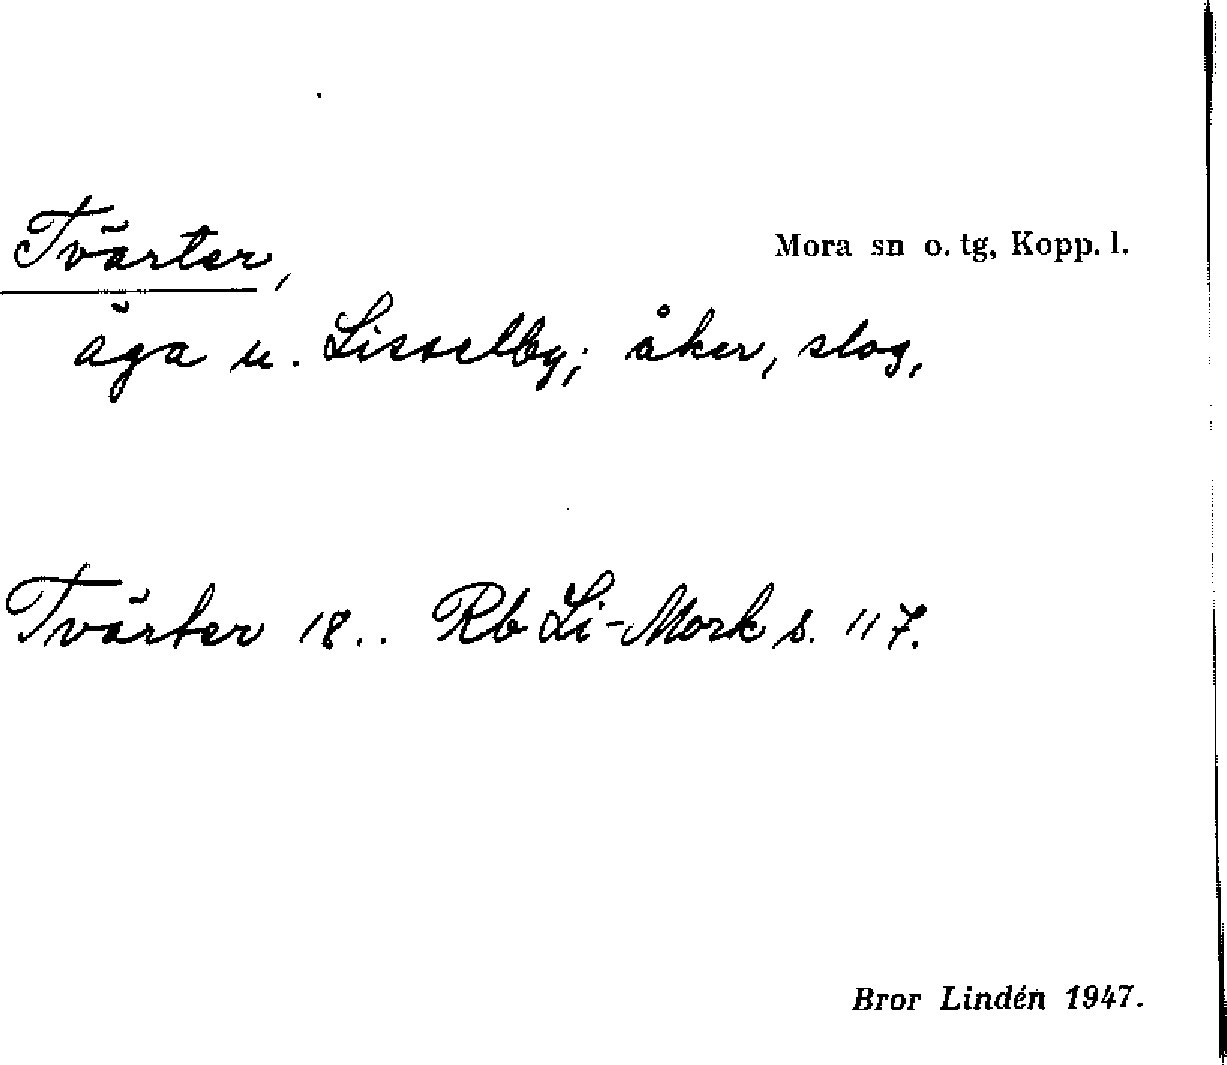 Tvärter,
Mora sn o. tg, Kopp. l.
äga u. Lisselby; åker, slog,
Tvärter 18.. Rb Li-Mork s. 117.
Bror Lindén 1947.